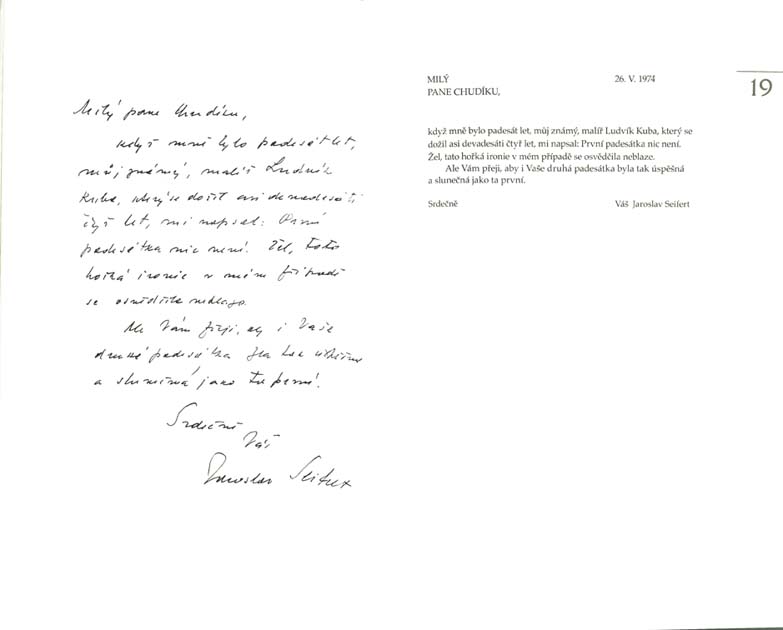 Milý pane Chudíku,
když mně bylo padesát let,
můj známý, malíř Ludvík
Kuba, který se dožil asi devadesáti
čtyř let, mi napsal: První
padesátka nic není. Žel, tato
hořká ironie v mém případě
se osvědčila neblaze.
Ale Vám přeji, aby i Vaše
druhá padesátka byla tak úspěšná
a slunečná jako ta první.
Srdečně
Váš
Jaroslav Seifert
MILÝ 26. V. 1974
PANE CHUDÍKU,
19
když mně bylo padesát let, můj známý, malíř Ludvík Kuba, který se
dožil asi devadesáti čtyř let, mi napsal: První padesátka nic není.
Žel, tato hořká ironie v mém případě se osvědčila neblaze.
Ale Vám přeji, aby i Vaše druhá padesátka byla tak úspěšná
a slunečná jako ta první.
Srdečně Váš Jaroslav Seifert